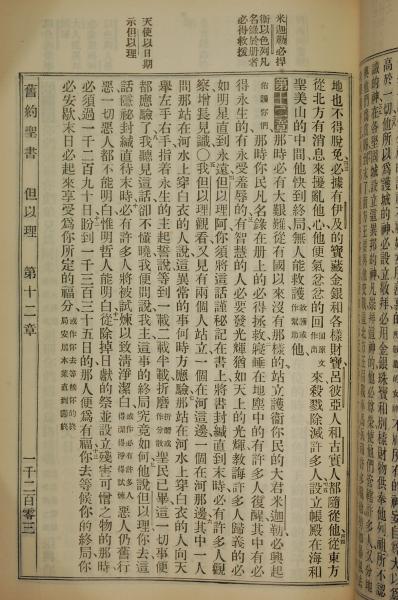 米迦勒必捍
衞以色列凡
名錄於册者
必得救援
天使以日期
示但以理
地也不得脫免必據有伊及的寶藏金銀和各樣財寶呂彼亞人和古實人都隨從他從東方
從北方有消息來擾亂他心他便氣忿忿的回原文作出來殺戮除滅許多人設立帳殿在海和
聖美山的中間他快到終局無人能救護救護或作幫助他
第十二章 那時必有大艱難從有國以來沒有那樣的站立護衞你民的大君米迦勒必興起
佑護你們那時你民凡名錄在册上的必得拯救寢睡在地塵中的有許多人復醒其中有必
得永生的有永受羞辱的有智慧的人必要發光輝猶如天上的光輝教誨許多人歸義的必
如明星直到永遠但以理阿你須將這話謹秘記在書上將書封緘直到末時必有許多人觀
察增長見識〇我但以理觀看又見有兩個人站立一個在河這邊一個在河那邊其中一人
問那站在河水上穿白衣的人說這異常的事何時應驗那站在河水上穿白衣的人向天
舉左手右手指着永生的主起誓說等到一載二載半載折磨折磨或作分散聖民已畢這一切事便
都應驗了我聽見這話卻不懂曉我便問說我主這事的終局究竟如何他說但以理你去這
話隱祕封緘直待末時必有許多人將被試煉以致清淨潔白或作必有許多人惡人仍舊行
惡一切惡人都不能明白惟明哲人能明白從除掉日獻的祭並設立殘害可憎之物的那時
必須過一千二百九十日盼到一千三百三十五日的那人便爲有福你去等候你的終局你
必安歇末日必起來享受爲你所定的福分
舊約聖書 但以理 第十二章 一千二百零三